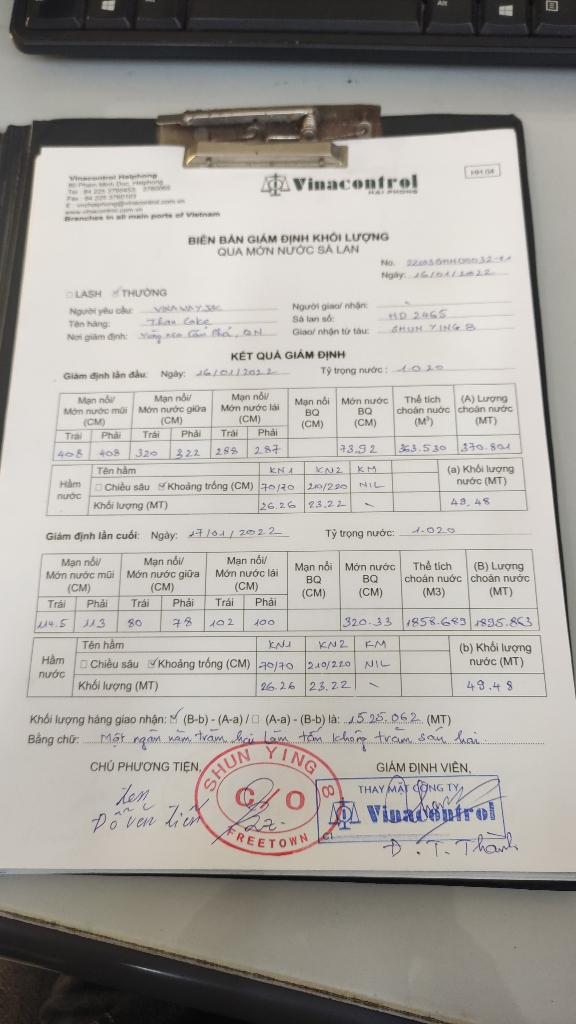 Vinacontrol Haiphong
80 Pham Minh Duc, Haiphong
www.vinacontrol.com.vn
Branches in all main ports of Vietnam
Vinacontrol
HAI PHONG
HH 04
BIÊN BẢN GIÁM ĐỊNH KHỐI LƯỢNG
QUA MỚN NƯỚC SÀ LAN
No.
Ngày: 16/01/2022
LASH THƯỜNG
Người yêu cầu: VINAWAY JSC Người giao/ nhận:
Tên hàng: Than Coke Sà lan số: HD 2465
Nơi giám định: Vùng neo Cẩm Phả, QN Giao/ nhận từ tàu: SHUN YING 8
KẾT QUẢ GIÁM ĐỊNH
Giám định lần đầu: Ngày: 16/01/2022 Tỷ trọng nước: 1.020
Mạn nổi/ Mớn nước mũi (CM) Mạn nổi/ Mớn nước giữa (CM) Mạn nổi/ Mớn nước lái (CM) Mạn nổi BQ (CM) Mớn nước BQ (CM) Thể tích choán nước (M³) (A) Lượng choán nước (MT)
Trái Phải Trái Phải Trái Phải
408 408 320 322 288 287 73.92 363.530 370.801
Hầm nước Tên hầm KN1 KN2 KM (a) Khối lượng nước (MT)
Chiều sâu Khoảng trống (CM) 70/70 210/220 NIL
Khối lượng (MT) 26.26 23.22 \ 49.48
Giám định lần cuối: Ngày: 17/01/2022 Tỷ trọng nước: 1.020
Mạn nổi/ Mớn nước mũi (CM) Mạn nổi/ Mớn nước giữa (CM) Mạn nổi/ Mớn nước lái (CM) Mạn nổi BQ (CM) Mớn nước BQ (CM) Thể tích choán nước (M3) (B) Lượng choán nước (MT)
Trái Phải Trái Phải Trái Phải
114.5 113 80 78 102 100 320.33 1858.689 1895.863
Hầm nước Tên hầm KN1 KN2 KM (b) Khối lượng nước (MT)
Chiều sâu Khoảng trống (CM) 70/70 210/220 NIL
Khối lượng (MT) 26.26 23.22 \ 49.48
Khối lượng hàng giao nhận: (B-b) - (A-a) / (A-a) - (B-b) là: 1525.062 (MT)
Bằng chữ: Một ngàn năm trăm hai lăm tấn không trăm sáu hai.
CHỦ PHƯƠNG TIỆN, GIÁM ĐỊNH VIÊN,
SHUN YING 8
C/O
FREETOWN
THAY MẶT CÔNG TY
Vinacontrol
Đ. T. Thành